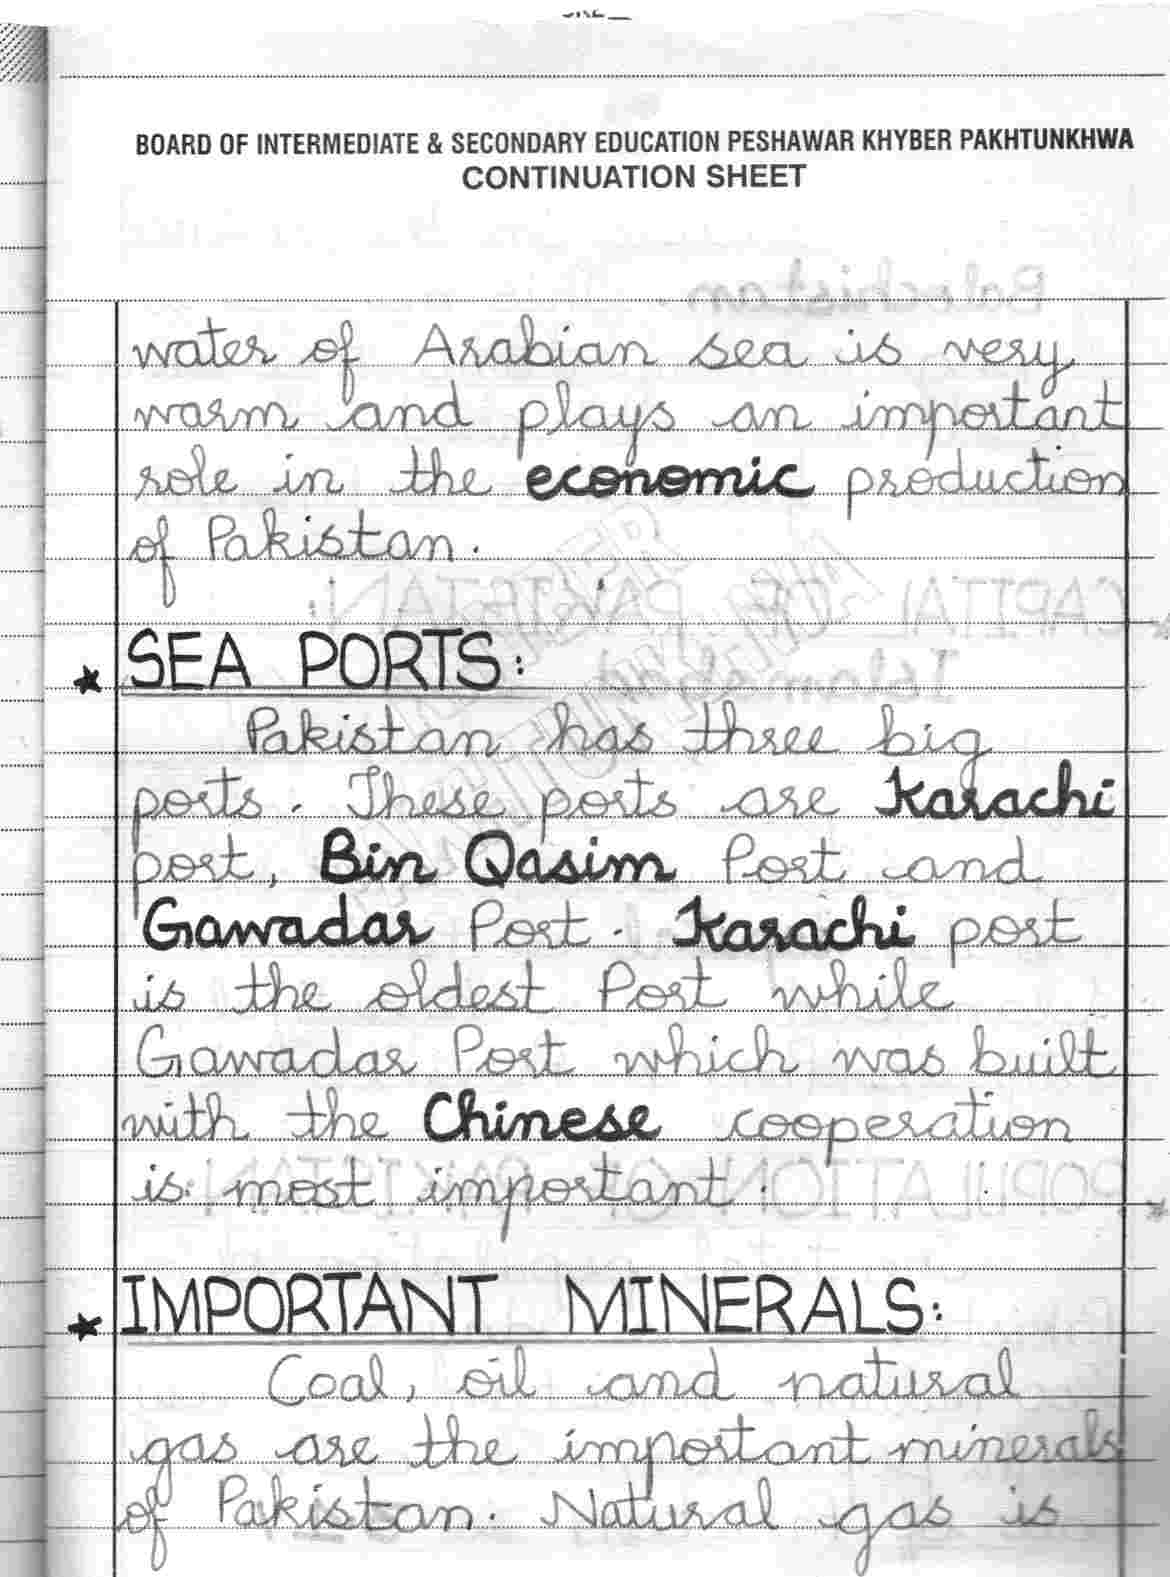 BOARD OF INTERMEDIATE & SECONDARY EDUCATION PESHAWAR KHYBER PAKHTUNKHWA
CONTINUATION SHEET
water of Arabian sea is very
warm and plays an important
role in the economic production
of Pakistan.
★ SEA PORTS:
Pakistan has three big
ports. These ports are Karachi
port, Bin Qasim Port and
Gawadar Port. Karachi port
is the oldest Port while
Gawadar Port which was built
with the Chinese cooperation
is most important.
★ IMPORTANT MINERALS:
Coal, oil and natural
gas are the important minerals
of Pakistan. Natural gas is